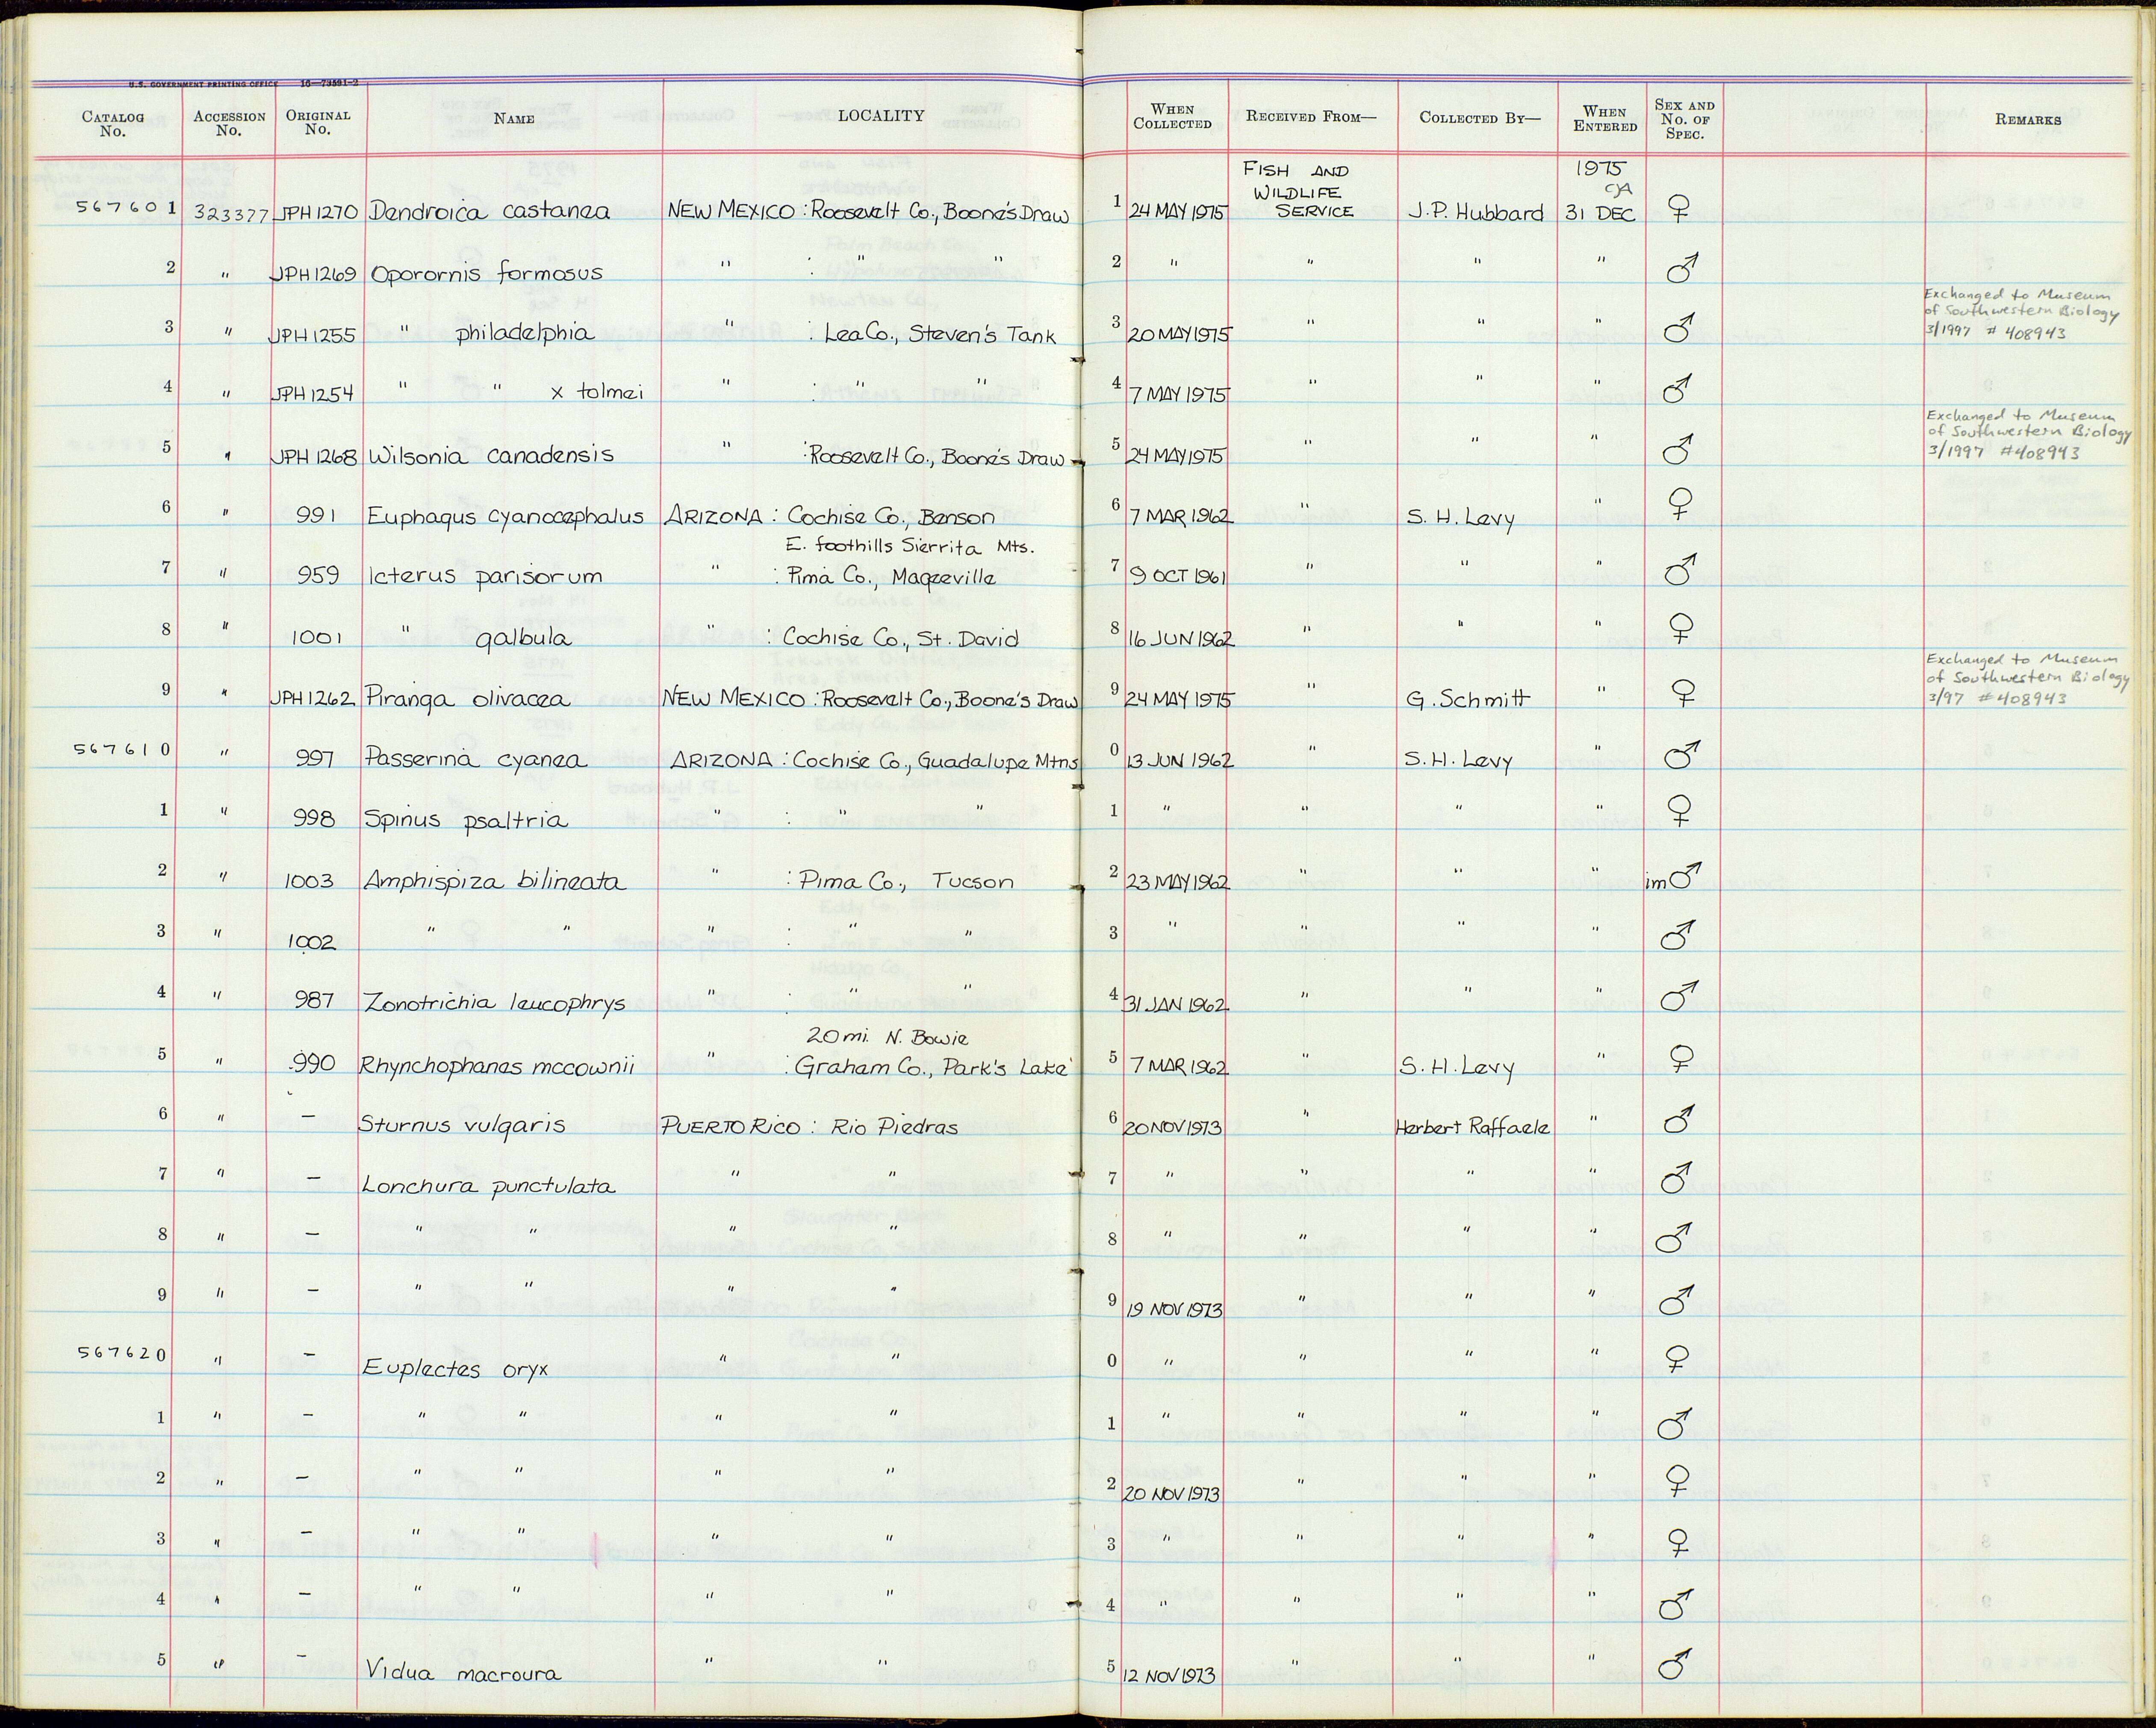 U.S. GOVERNMENT PRINTING OFFICE 16—73591-2
CATALOG No. ACCESSION No. ORIGINAL No. NAME LOCALITY WHEN COLLECTED RECEIVED FROM— COLLECTED BY— WHEN ENTERED SEX AND No. OF SPEC. REMARKS
FISH AND WILDLIFE SERVICE 1975
567601 323377 JPH1270 Dendroica castanea NEW MEXICO : Roosevelt Co., Boone's Draw 1 24 MAY 1975 J.P. Hubbard 31 DEC ♀
2 " JPH1269 Oporornis formosus " : " " 2 " " " " ♂
3 " JPH1255 " philadelphia " : Lea Co., Steven's Tank 3 20 MAY 1975 " " " ♂ Exchanged to Museum of Southwestern Biology 3/1997 # 408943
4 " JPH1254 " " x tolmei " : " " 4 7 MAY 1975 " " " ♂
5 " JPH1268 Wilsonia canadensis " : Roosevelt Co., Boone's Draw 5 24 MAY 1975 " " " ♂ Exchanged to Museum of Southwestern Biology 3/1997 #408943
6 " 991 Euphagus cyanocephalus ARIZONA : Cochise Co., Benson 6 7 MAR 1962 " S. H. Levy " ♀
E. foothills Sierrita Mts.
7 " 959 Icterus parisorum " : Pima Co., Mageeville 7 9 OCT 1961 " " " ♂
8 " 1001 " galbula " : Cochise Co., St. David 8 16 JUN 1962 " " " ♀
9 " JPH1262 Piranga olivacea NEW MEXICO : Roosevelt Co., Boone's Draw 9 24 MAY 1975 " G. Schmitt " ♀ Exchanged to Museum of Southwestern Biology 3/97 #408943
567610 " 997 Passerina cyanea ARIZONA : Cochise Co., Guadalupe Mtns 0 13 JUN 1962 " S.H. Levy " ♂
1 " 998 Spinus psaltria " : " " 1 " " " " ♀
2 " 1003 Amphispiza bilineata " : Pima Co., Tucson 2 23 MAY 1962 " " " im ♂
3 " 1002 " " " : " " 3 " " " " ♂
4 " 987 Zonotrichia leucophrys " : " " 4 31 JAN 1962 " " " ♂
20 mi. N. Bowie
5 " 990 Rhynchophanes mccownii " : Graham Co., Park's Lake 5 7 MAR 1962 " S. H. Levy " ♀
6 " — Sturnus vulgaris PUERTO RICO : Rio Piedras 6 20 NOV 1973 " Herbert Raffaele " ♂
7 " — Lonchura punctulata " " 7 " " " " ♂
8 " — " " " " 8 " " " " ♂
9 " — " " " " 9 19 NOV 1973 " " " ♂
567620 " — Euplectes oryx " " 0 " " " " ♀
1 " — " " " " 1 " " " " ♂
2 " — " " " " 2 20 NOV 1973 " " " ♀
3 " — " " " " 3 " " " " ♀
4 " — " " " " 4 " " " " ♂
5 " — Vidua macroura " " 5 12 NOV 1973 " " " ♂